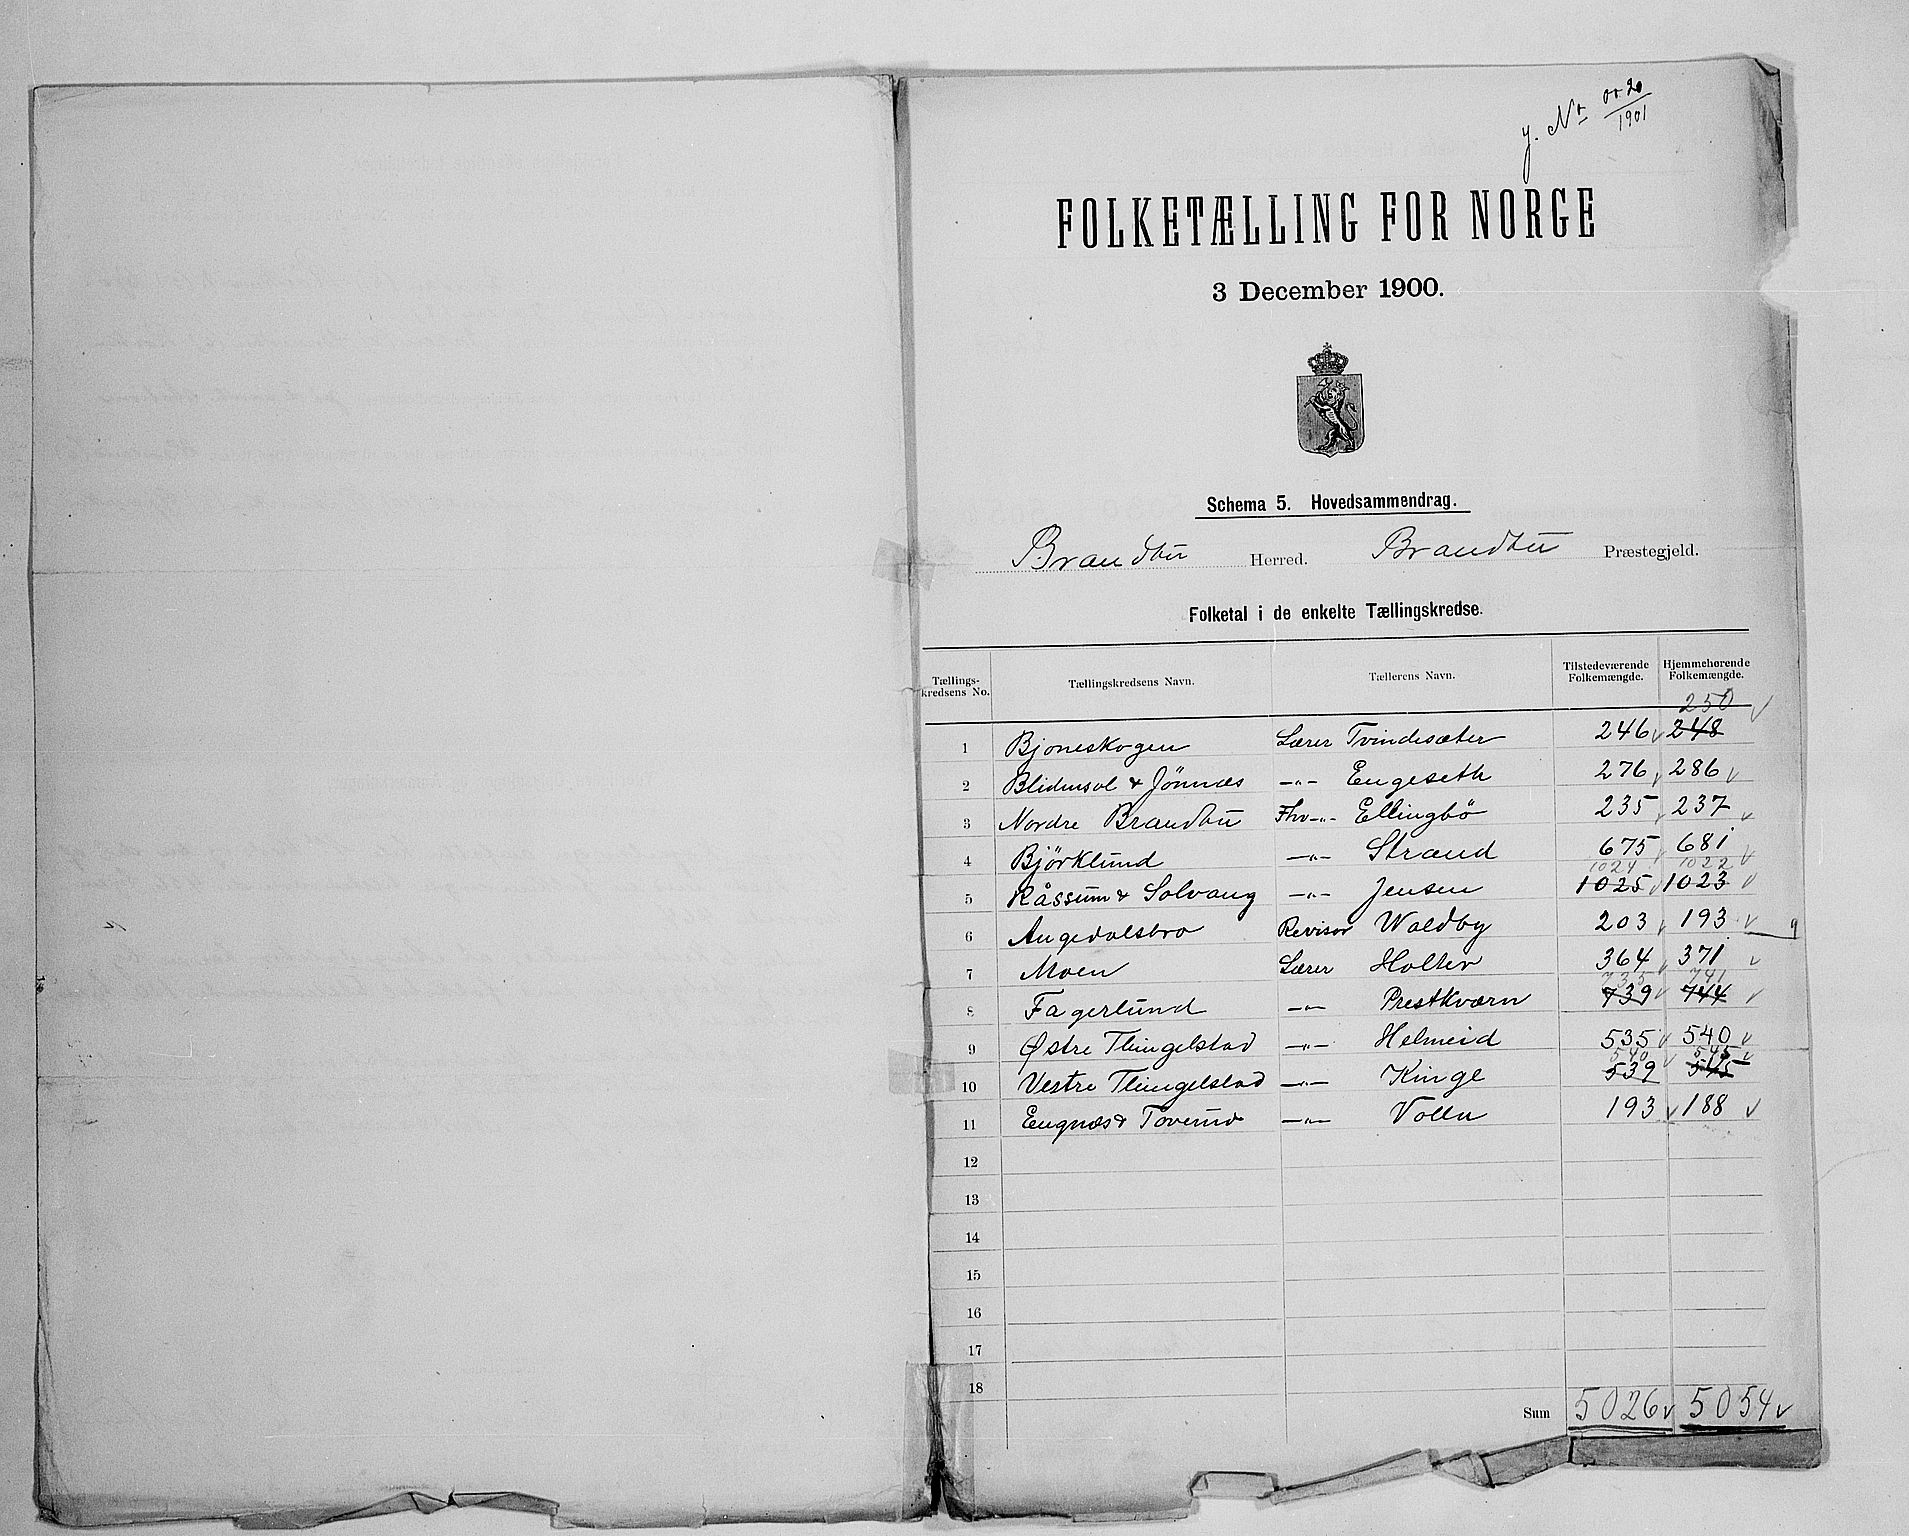 J. Nr 0020/1901
FOLKETÆLLING FOR NORGE
3 December 1900.
Schema 5. Hovedsammendrag.
Brandbu Herred. Brandbu Præstegjeld.
Folketal i de enkelte Tællingskredse.
Tællings-kredsens No. Tællingskredsens Navn. Tællerens Navn. Tilstedeværende Folkemængde. Hjemmehørende Folkemængde.
250
1 Bjoneskogen Lærer Tvindesæter 246 248
2 Blidensol & Jønnæs —"— Engeseth 276 286
3 Nordre Brandbu Fhv —"— Ellingbö 235 237
4 Björklund —"— Strand 675 681
1024 1022
5 Råssum & Solvang —"— Jensen 1025 1023
6 Augedalsbro Revisor Waldby 203 193
7 Moen Lærer Holter 364 371
735 741
8 Fagerlund —"— Prestkværn 739 744
9 Østre Tlingelstad —"— Helmeid 535 540
540 545
10 Vestre Tlingelstad —"— Kinge 539 545
11 Engnæs & Toverud —"— Volln 193 188
12
13
14
15
16
17
18
Sum 5026 5054